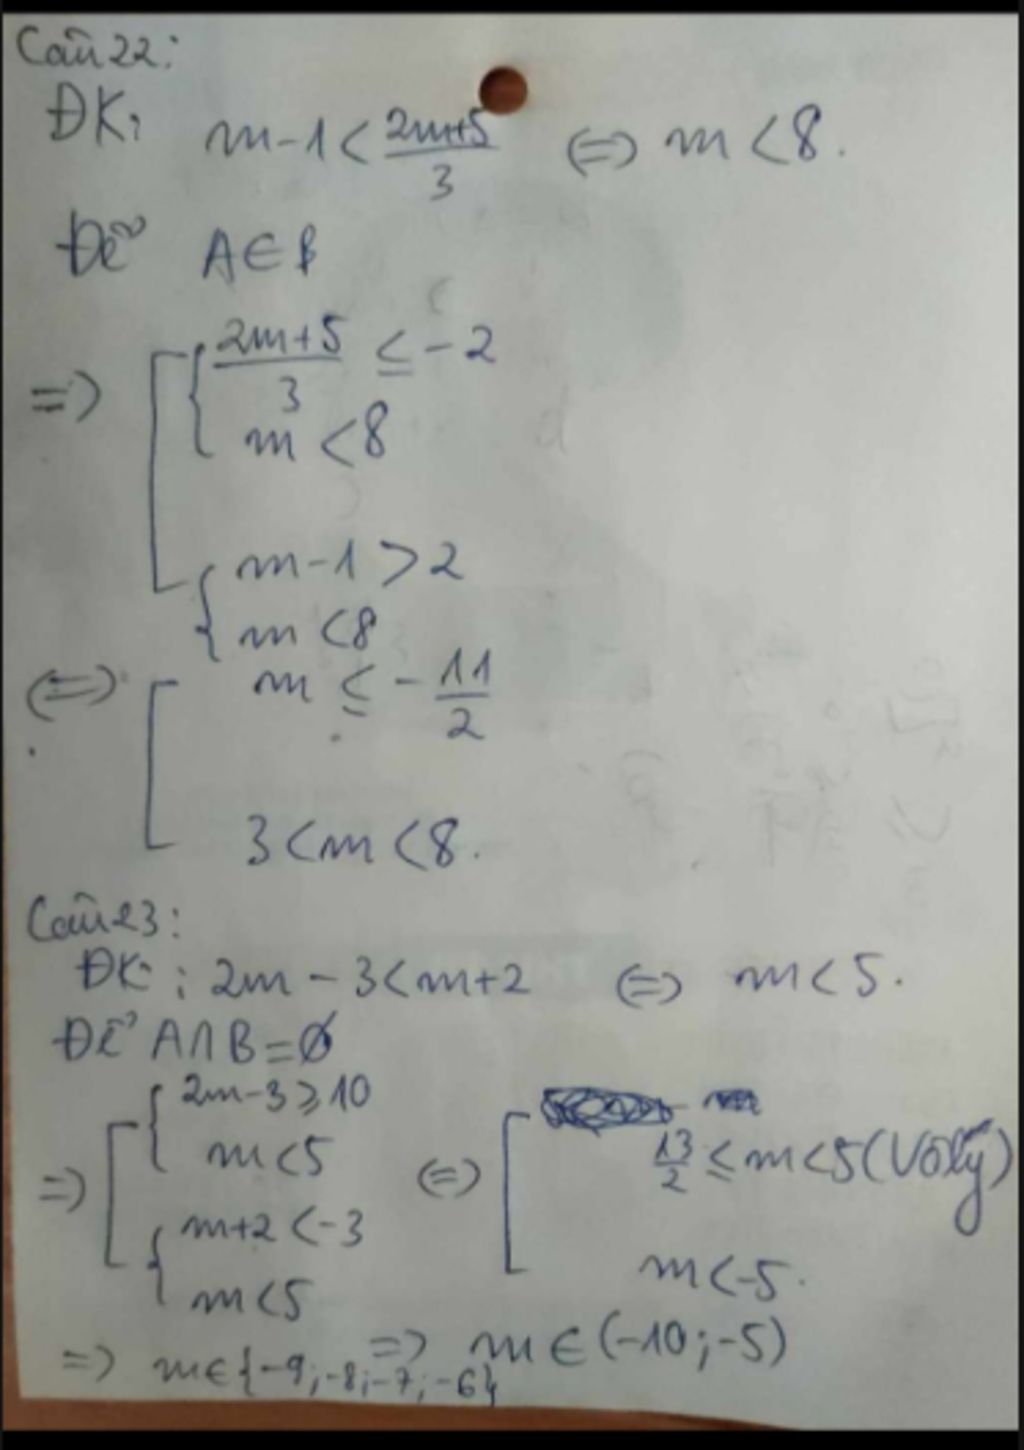 Câu 22:
ĐK: m-1 < \frac{2m+5}{3} <=> m < 8.
Để A ∈ B
=> [ { \frac{2m+5}{3} ≤ -2
m < 8
{ m-1 > 2
m < 8
<=> [ m ≤ -\frac{11}{2}
3 < m < 8.
Câu 23:
ĐK: : 2m - 3 < m+2 <=> m < 5.
Để A∩B = Ø
=> [ { 2m-3 ≥ 10
m < 5
{ m+2 < -3
m < 5
<=> [ \frac{13}{2} ≤ m < 5 (Vô lý)
m < -5.
=> m ∈ (-10; -5)
=> m ∈ {-9; -8; -7; -6}